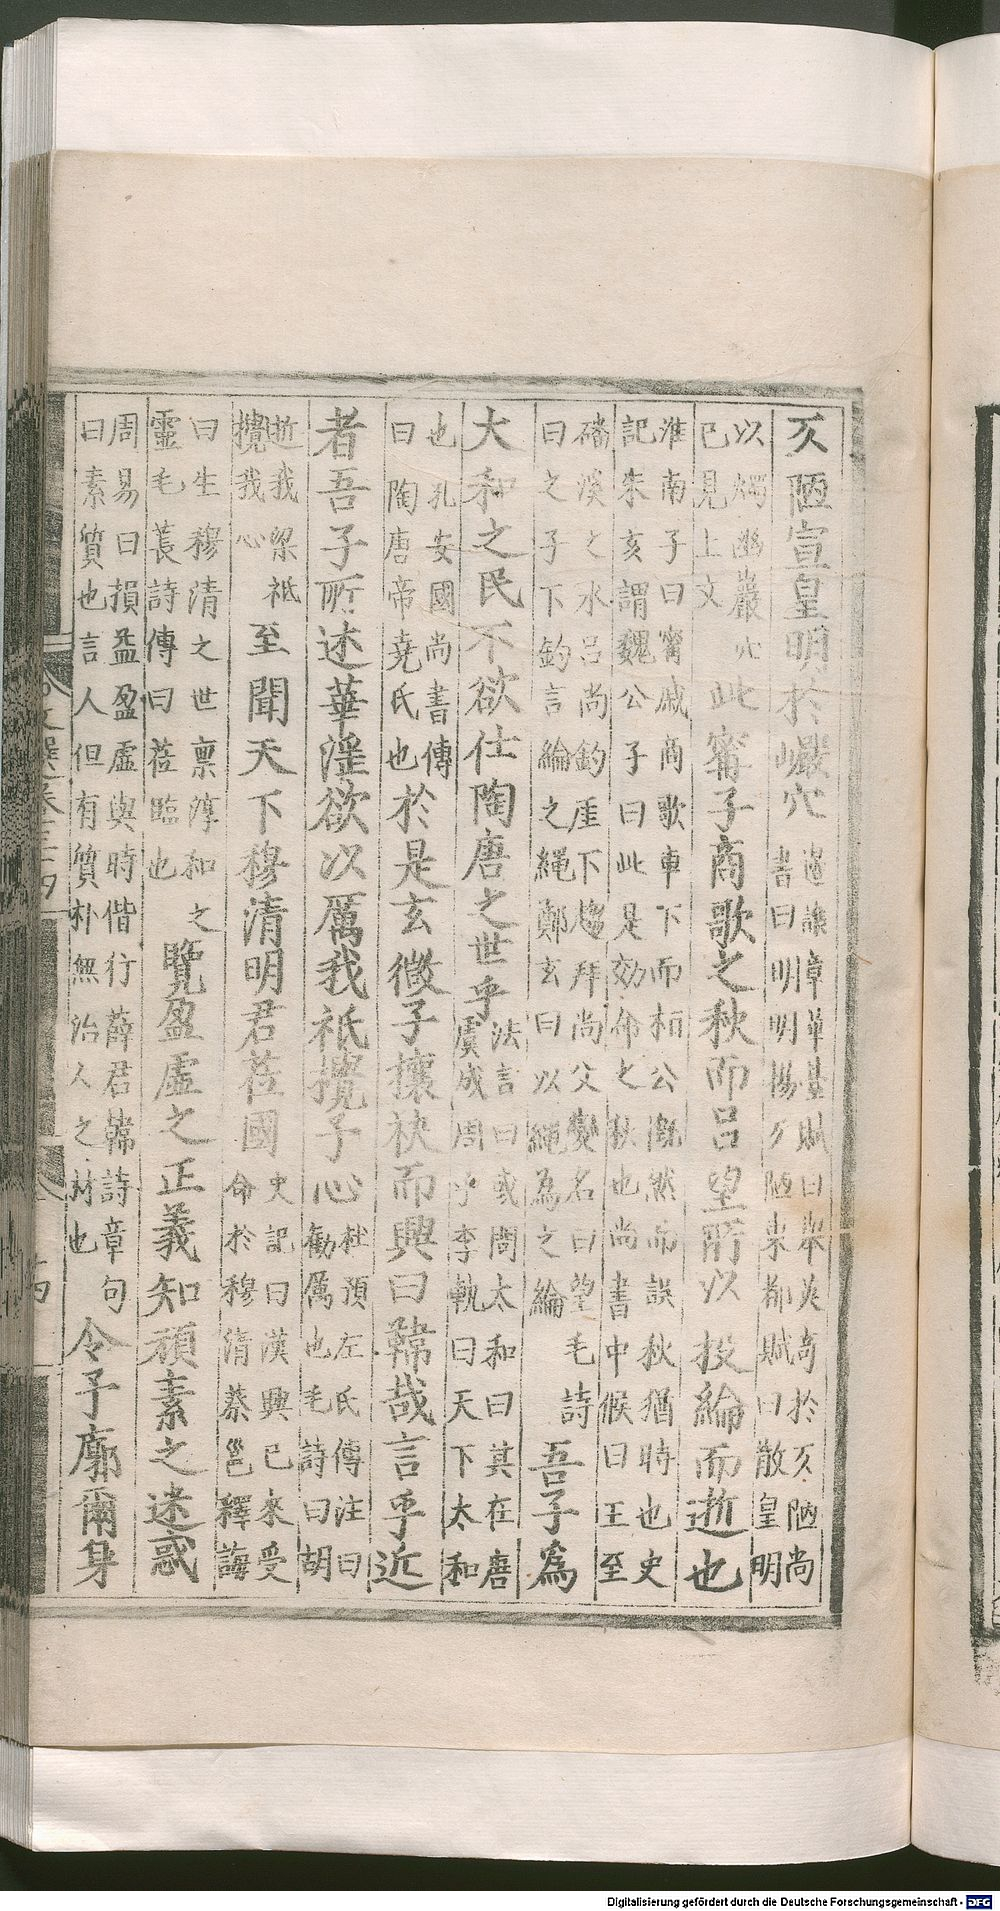 仄陋宣皇明於巖穴
邊讓章華臺賦曰舉英奇於仄陋尚
書曰明明揚仄陋東都賦曰散皇明
以燭幽巖穴
已見上文
此甯子商歌之秋而呂望所以投綸而逝也
淮南子曰甯戚商歌車下而桓公慨然而誤秋猶時也史
記朱亥謂魏公子曰此是効命之秋也尚書中候曰王至
磻溪之水呂尚釣厓下趨拜尚父變名曰望毛詩
曰之子下釣言綸之繩鄭玄曰以繩為之綸
吾子為
大和之民不欲仕陶唐之世乎
法言曰或問太和曰其在唐
虞成周乎李軌曰天下太和
也孔安國尚書傳
曰陶唐帝堯氏也
於是玄微子攘袂而興曰韡哉言乎近
者吾子所述華淫欲以厲我祇攪予心
杜預左氏傳注曰
勸厲也毛詩曰胡
逝我梁祇
攪我心
至聞天下穆清明君莅國
史記曰漢興已來受
命於穆清蔡邕釋誨
曰生穆清之世稟淳和之
靈毛萇詩傳曰莅臨也
覽盈虛之正義知頑素之迷惑
周易曰損益盈虛與時偕行薛君韓詩章句
曰素質也言人但有質朴無治人之材也
令予廓爾身
文選卷三十四
Digitalisierung gefördert durch die Deutsche Forschungsgemeinschaft - DFG